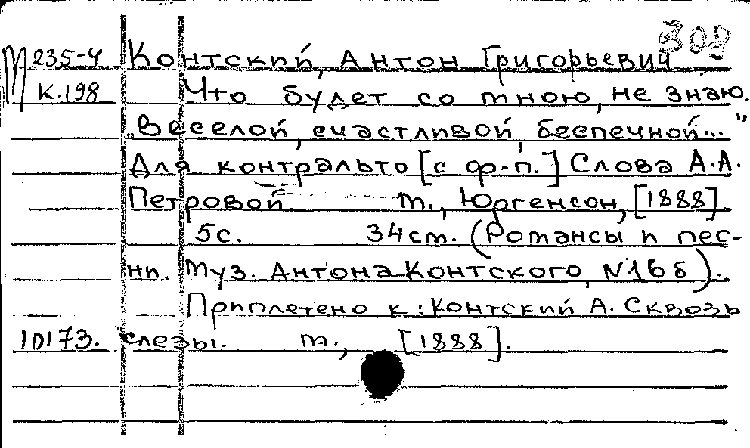 309
М 235-4 Контский, Антон Григорьевич
К.198 Что будет со мною, не знаю.
"Веселой, счастливой, беспечной..."
Для контральто [с ф-п.] Слова А.А.
Петровой М., Юргенсон, [1888]
5с. 34см. (Романсы и пес-
ни. Муз. Антона Контского, №16б).
Приплетено к: Контский А. Сквозь
10173. слезы. М., [1888].